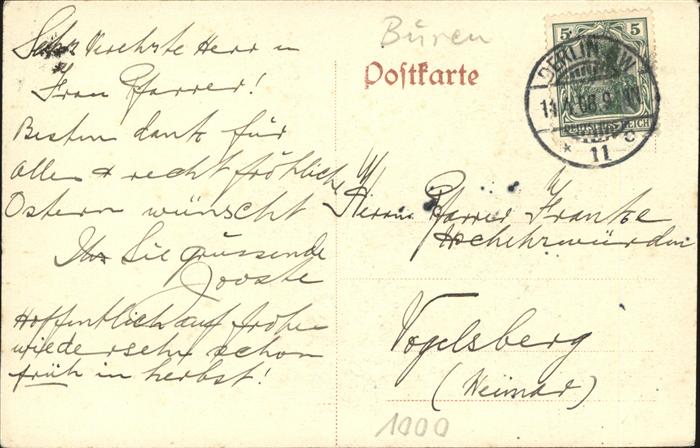 Sehr Verehrte Herr u
Frau Pfarrer!
Besten dank für
alles & recht fröhliche
Ostern wünscht
Ihr Sie grüssende
Jooste
Hoffentlich auf frohe
wiedersehn schon
früh in herbst!
Büren
Postkarte
5 5
BERLIN S.W.
11.4.08.9
DEUTSCHES REICH
* 11 c
Herrn Pfarrer Franke
Hochehrwürden
Vogelsberg
(Weimar)
1000